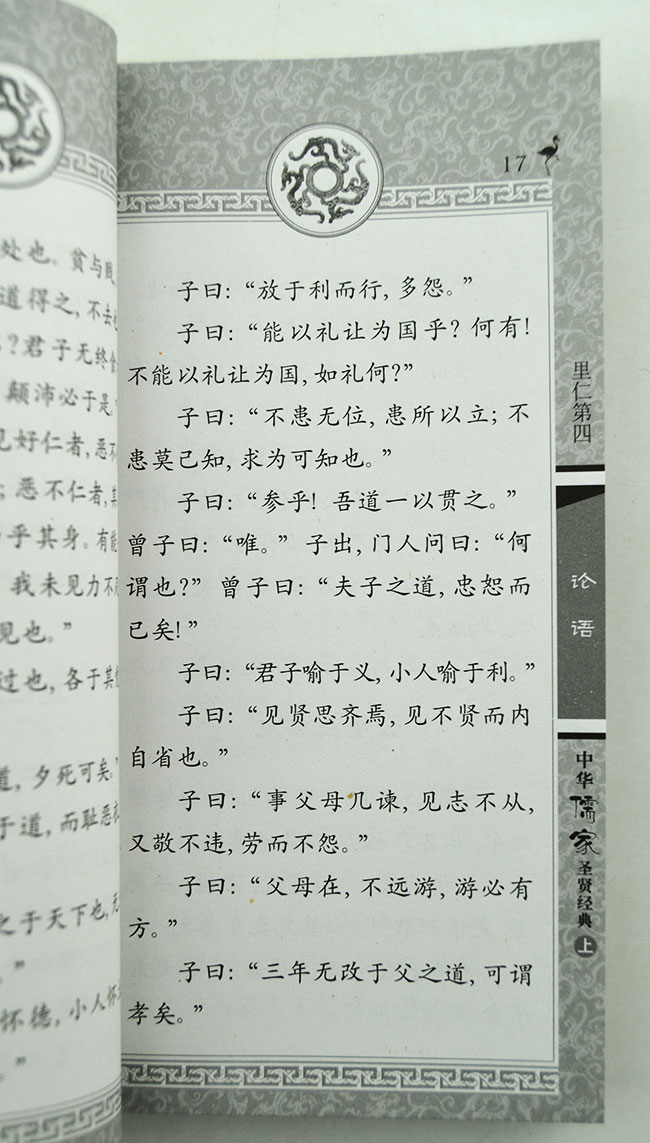 处也。贫与
道得之，不去
？君子无终食
颠沛必于是。
见好仁者，恶不
；恶不仁者，其
乎其身。有能
我未见力不
见也。”
过也，各于其
道，夕死可矣。”
于道，而耻恶衣
之于天下也，无
。”
怀德，小人怀
。”
17
子曰：“放于利而行，多怨。”
子曰：“能以礼让为国乎？何有！
不能以礼让为国，如礼何？”
子曰：“不患无位，患所以立；不
患莫己知，求为可知也。”
子曰：“参乎！吾道一以贯之。”
曾子曰：“唯。”子出，门人问曰：“何
谓也？”曾子曰：“夫子之道，忠恕而
已矣！”
子曰：“君子喻于义，小人喻于利。”
子曰：“见贤思齐焉，见不贤而内
自省也。”
子曰：“事父母几谏，见志不从，
又敬不违，劳而不怨。”
子曰：“父母在，不远游，游必有
方。”
子曰：“三年无改于父之道，可谓
孝矣。”
里仁第四
论语
中华儒家圣贤经典上